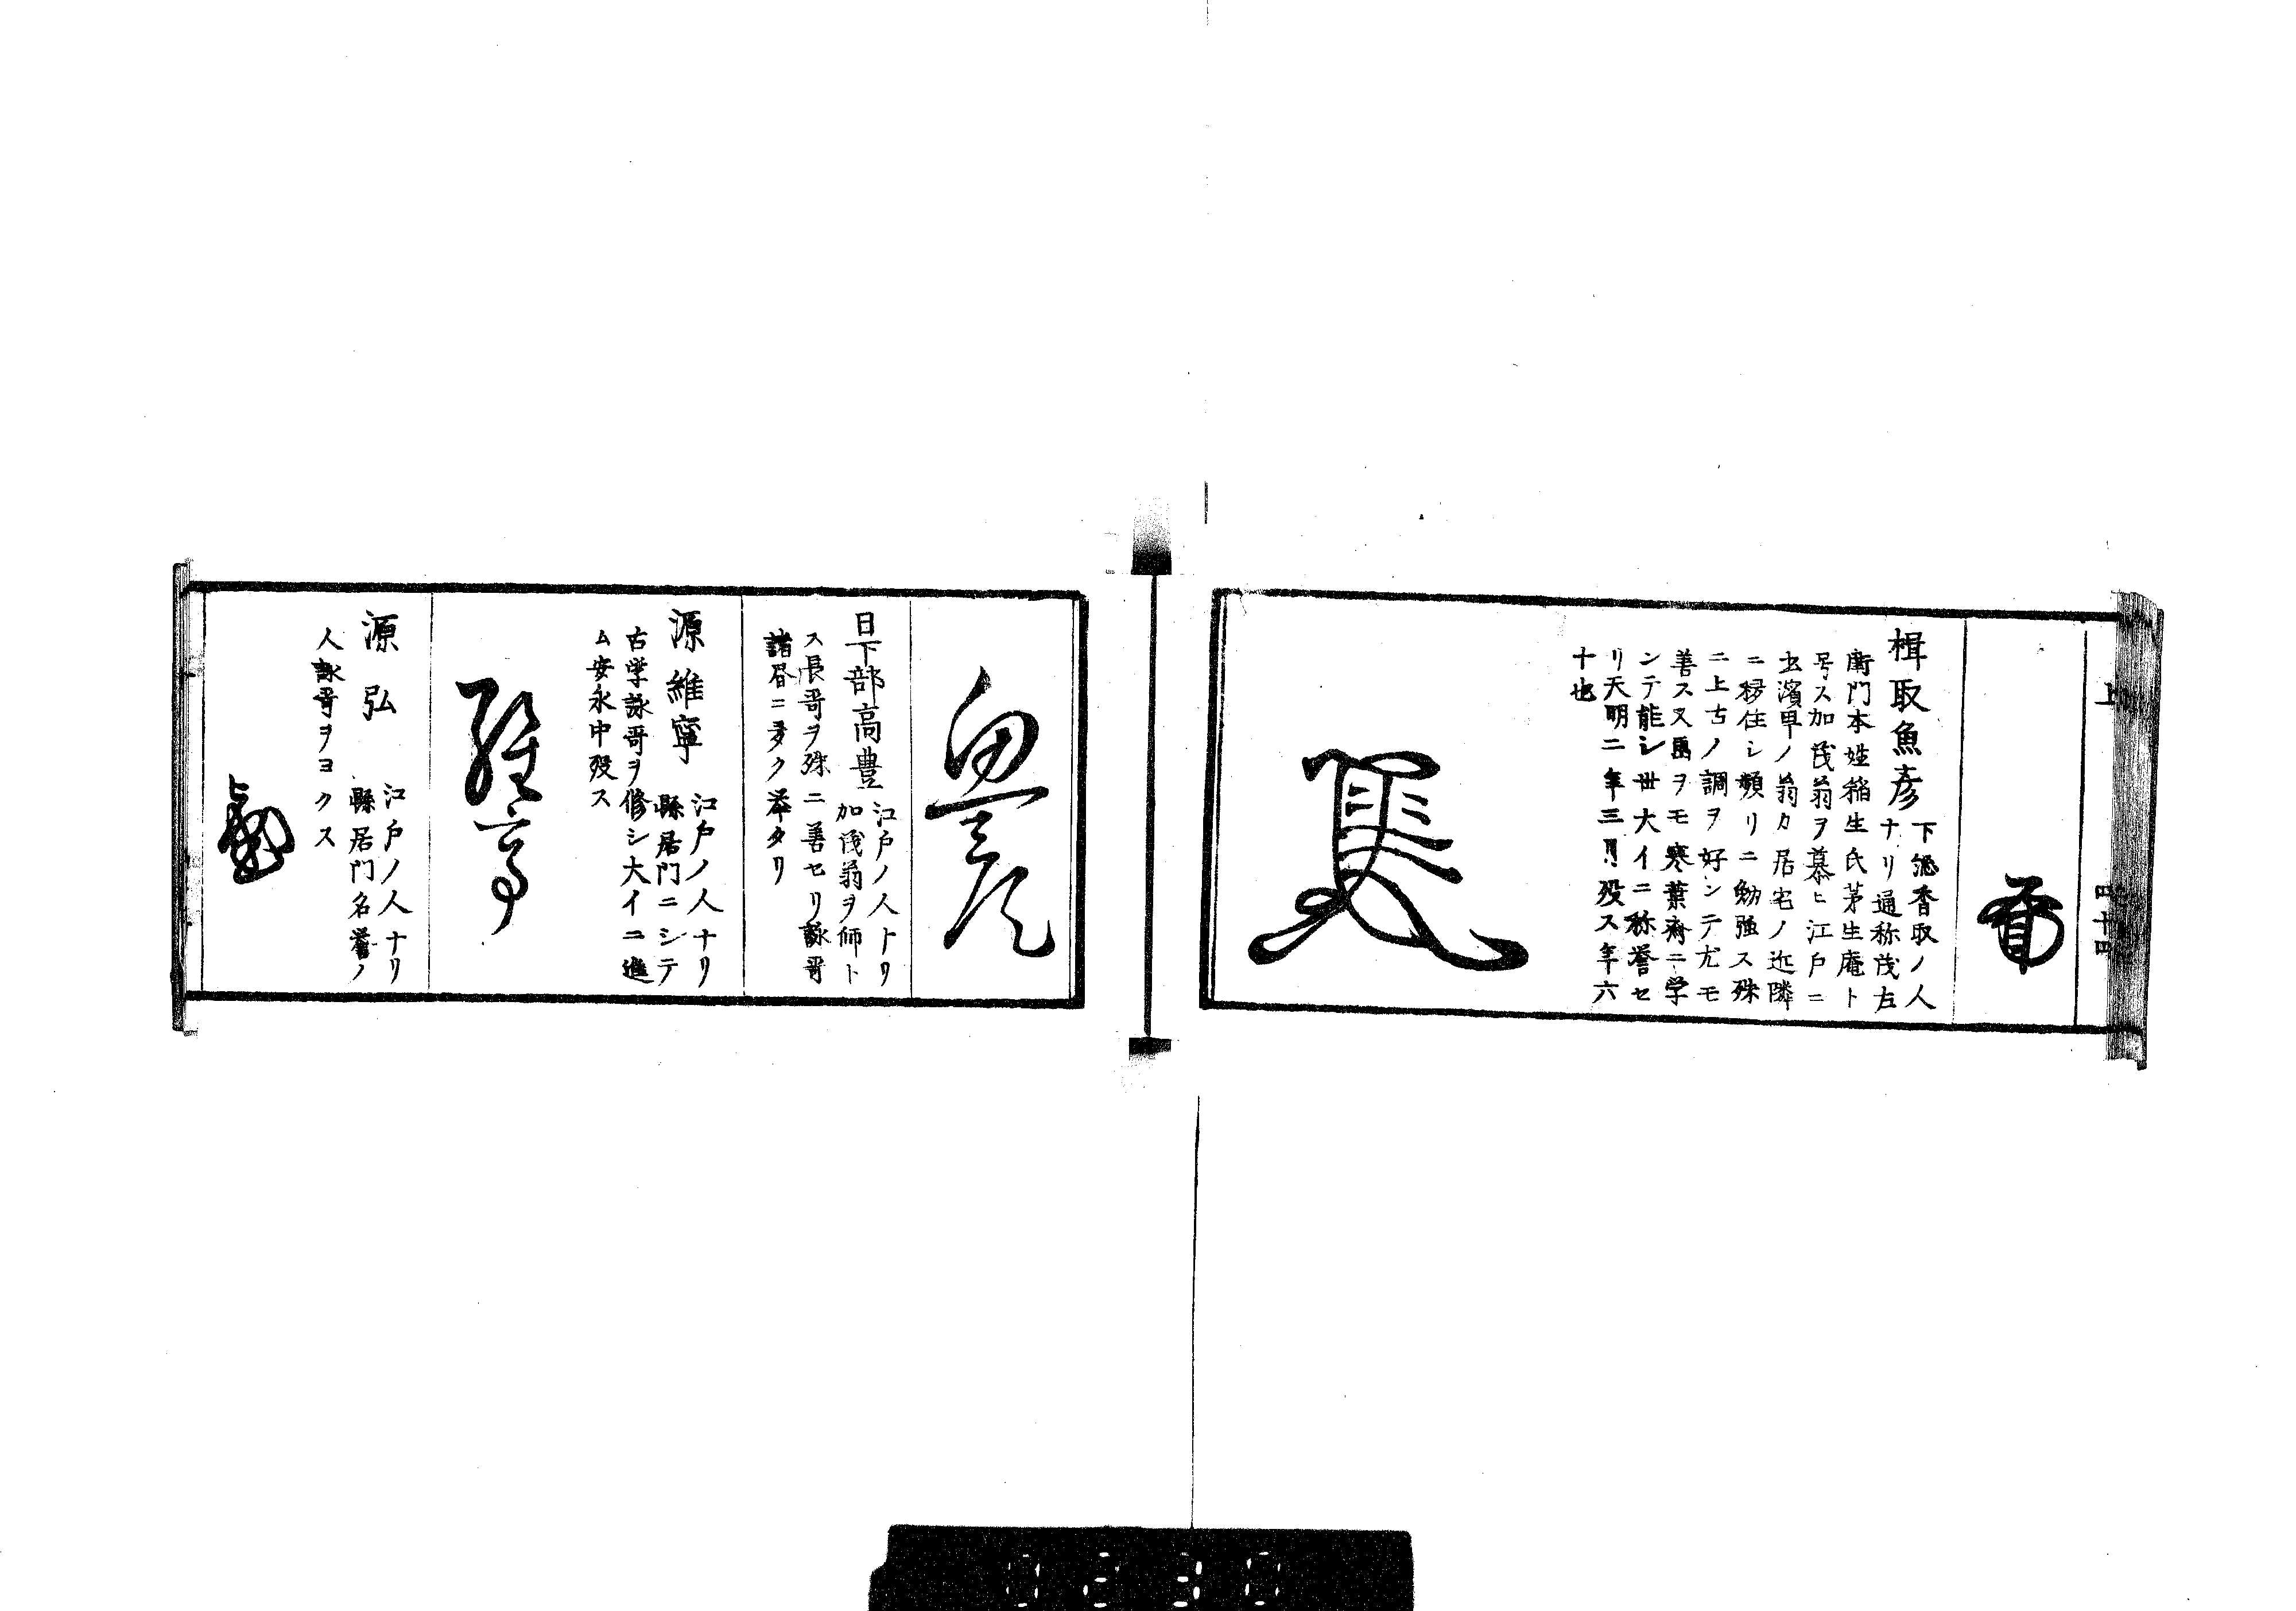 上
四十四
楫取魚彦
下総香取ノ人
ナリ通称茂左
衛門本姓稲生氏茅生庵ト
号ス加茂翁ヲ慕ヒ江戸ニ
出濱町ノ翁カ居宅ノ近隣
ニ移住シ頻リニ勉強ス殊
ニ上古ノ調ヲ好ンテ尤モ
善ス又画ヲモ寒葉斎ニ学
ンテ能シ世大イニ称誉セ
リ天明二年三月歿ス年六
十也
日下部高豊
江戸ノ人ナリ
加茂翁ヲ師ト
ス長哥ヲ殊ニ善セリ詠哥
諸昏ニ多ク挙タリ
源維寧
江戸ノ人ナリ
縣居門ニシテ
古学詠哥ヲ修シ大イニ進
ム安永中歿ス
源弘
江戸ノ人ナリ
縣居門名誉ノ
人詠哥ヲヨクス
0230